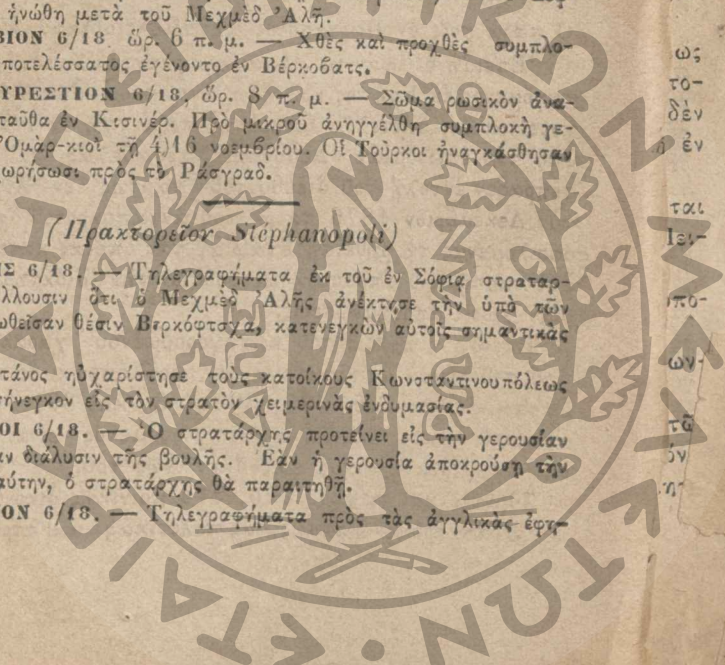 ἡνώθη μετὰ τοῦ Μεχμὲδ Ἀλῆ.
ΒΙΟΝ 6/18 ὥρ. 6 π. μ. — Χθὲς καὶ προχθὲς συμπλο-
ποτελέσσατος ἐγένοντο ἐν Βέρκοβατς.
ΥΡΕΣΤΙΟΝ 6/18, ὥρ. 8 π. μ. — Σῶμα ρωσικὸν ἀνα-
ταῦθα ἐν Κισινέρ. Πρὸ μικροῦ ἀνηγγέλθη συμπλοκὴ γε-
Ὀμὰρ-κιοῒ τῇ 4)16 νοεμβρίου. Οἱ Τοῦρκοι ἠναγκάσθησαν
ωρήσωσι πρὸς τὸ Ράσγραδ.
(Πρακτορεῖον Stéphanopoli)
Σ 6/18. — Τηλεγραφήματα ἐκ τοῦ ἐν Σόφιᾳ στραταρ-
λλουσιν ὅτι ὁ Μεχμὲδ Ἀλῆς ἀνέκτησε τὴν ὑπὸ τῶν
ωθεῖσαν θέσιν Βερκόφτσχα, κατενεγκὼν αὐτοῖς σημαντικὰς
τάνος ηὐχαρίστησε τοὺς κατοίκους Κωνσταντινουπόλεως
σήνεγκον εἰς τὸν στρατὸν χειμερινὰς ἐνδυμασίας.
ΟΙ 6/18. — Ὁ στρατάρχης προτείνει εἰς τὴν γερουσίαν
αν διάλυσιν τῆς βουλῆς. Ἐὰν ἡ γερουσία ἀποκρούσῃ τὴν
αύτην, ὁ στρατάρχης θὰ παραιτηθῇ.
ΟΝ 6/18. — Τηλεγραφήματα πρὸς τὰς ἀγγλικὰς ἐφη-
ως
το-
δὲν
ἐν
ται
πο-
ων-
τῶ
ΕΤΑΙΡ
ΗΠΕΙΡΩΤΙΚΩΝ ΜΕΛΕΤΩΝ